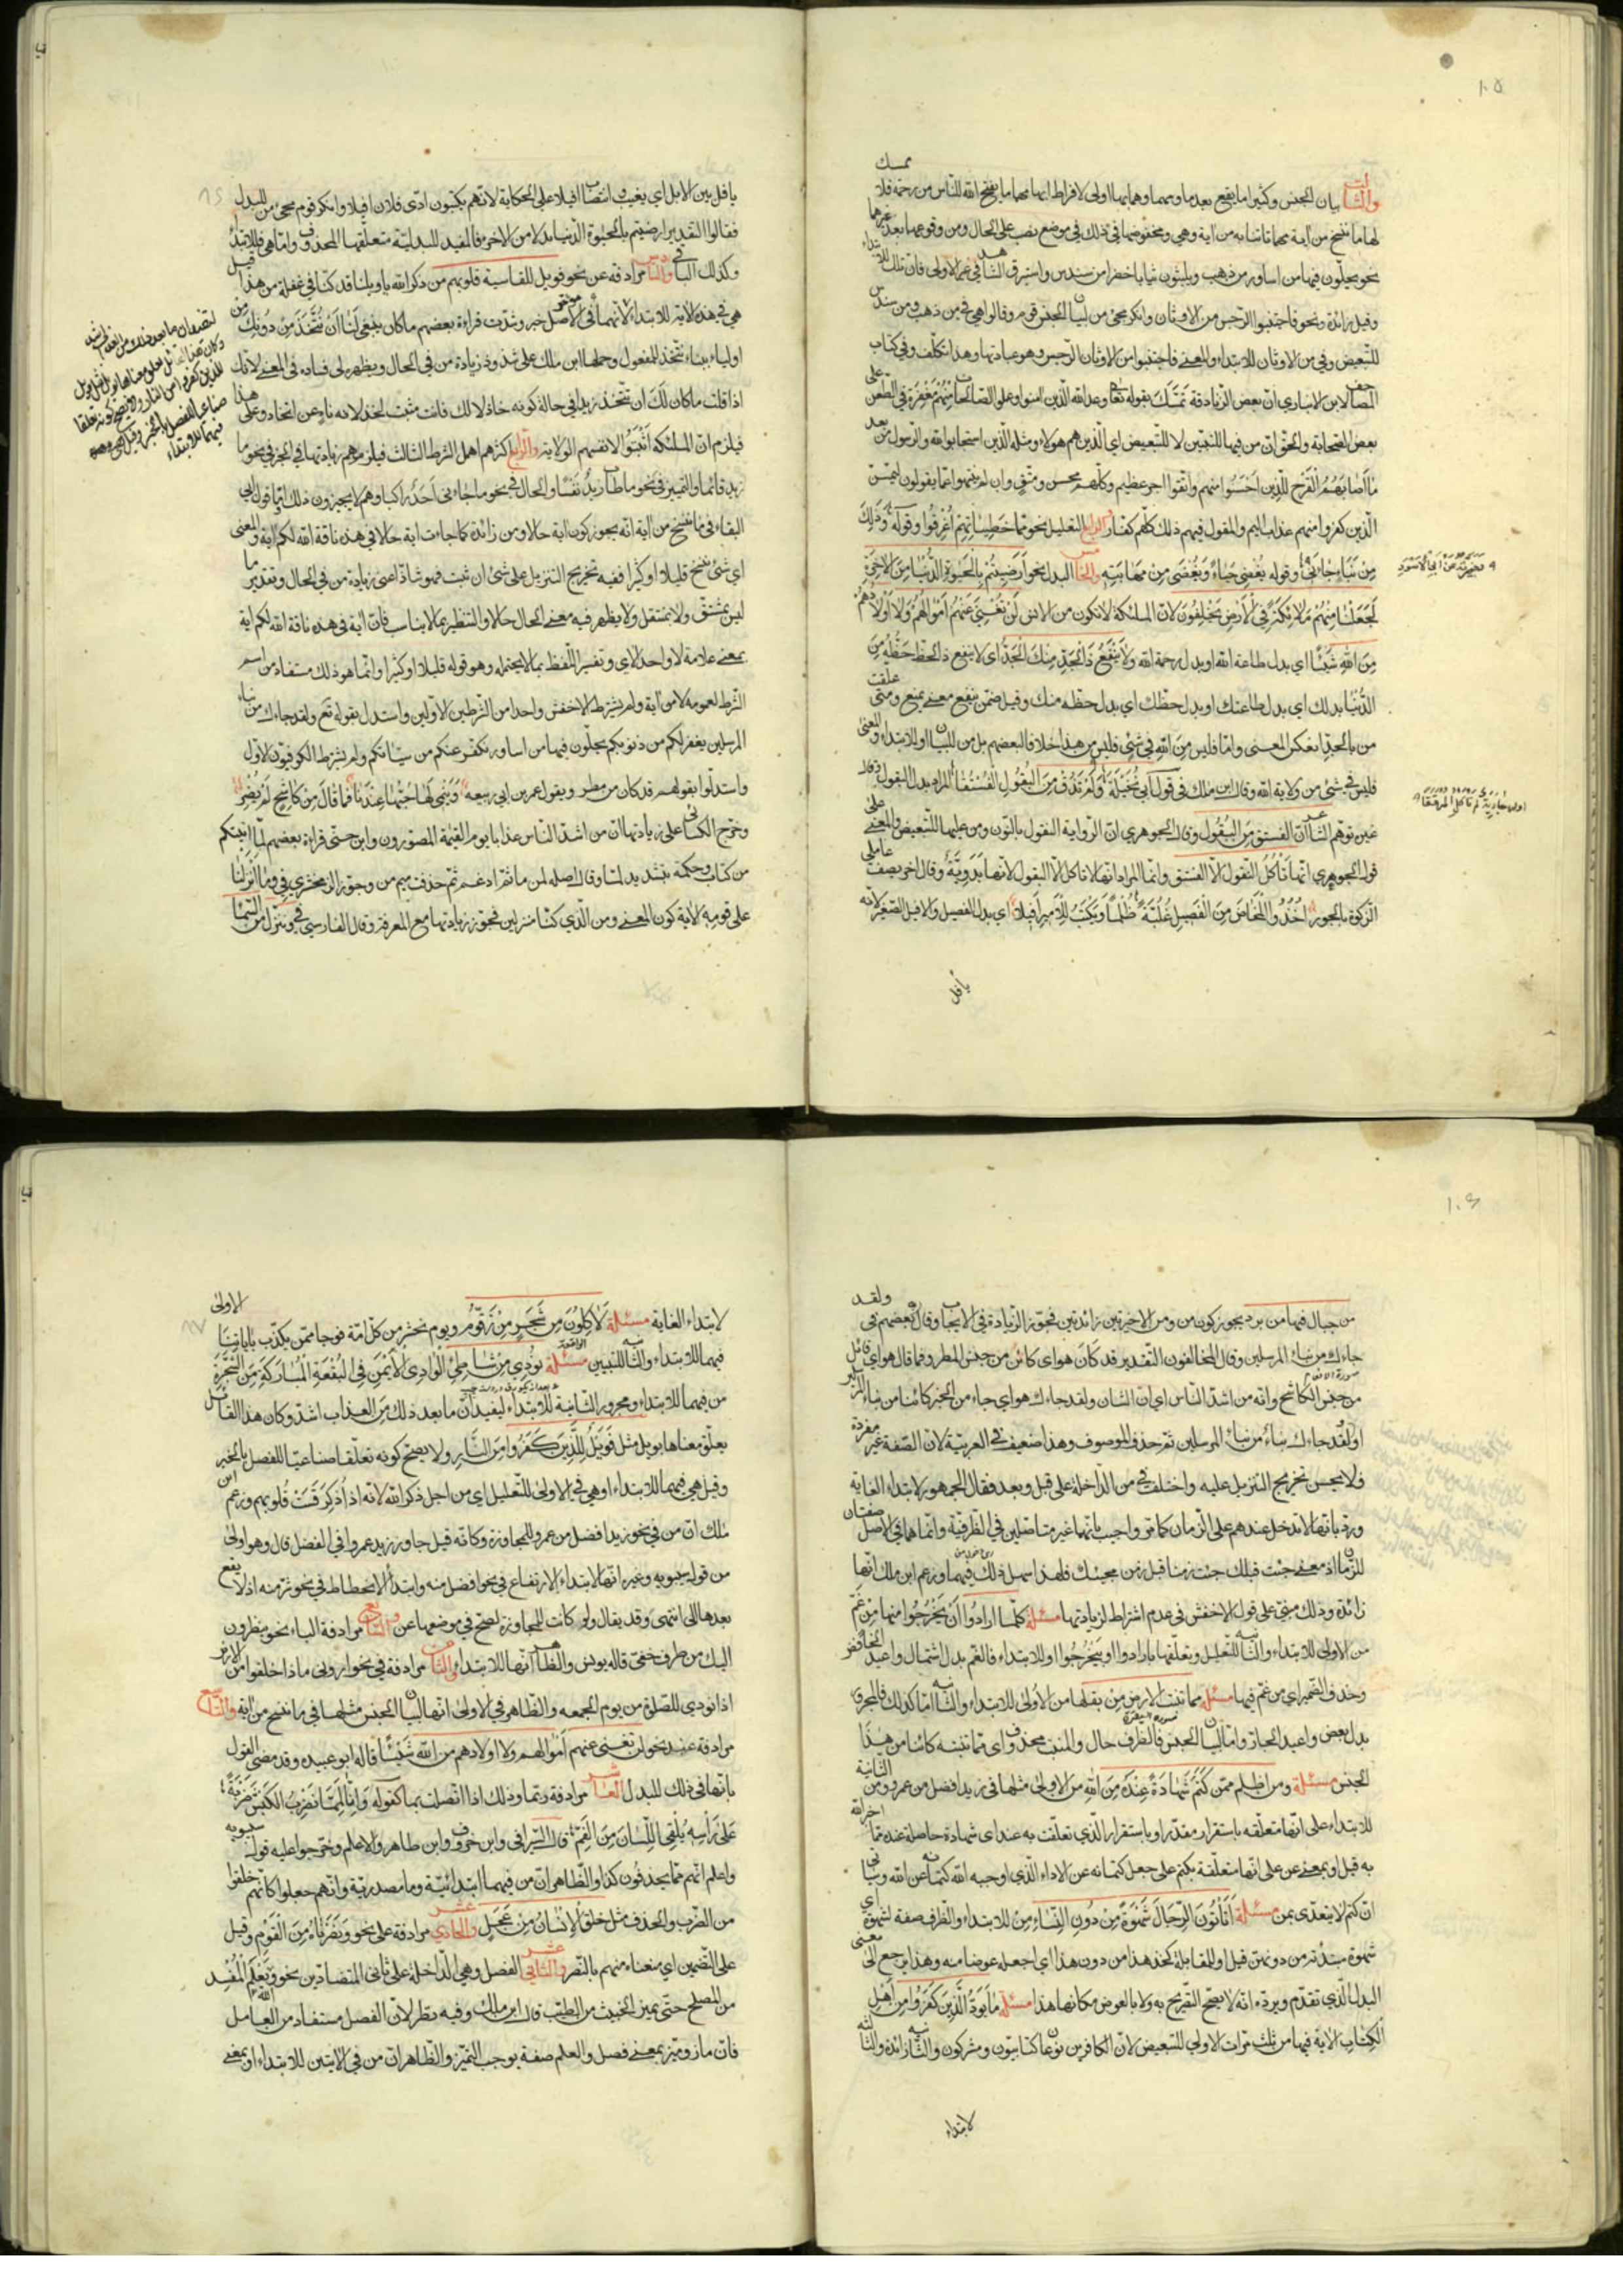 ١٠٥
والثالث بيان الجنس وكثيرا ما يقع بعد ما ومهما وهما بها اولى لافراط ابهامهما ما يفتح الله للناس من رحمة فلا ممسك
لها ما ننسخ من آية مهما تاتنا به من آية وهي ومخفوضها في ذلك في موضع نصب على الحال ومن وقوعها بعد غيرهما
نحو يحلون فيها من اساور من ذهب ويلبسون ثيابا خضرا من سندس واستبرق الشاهد في غير الاولى فان تلك للابتداء
وقيل زائدة ونحو فاجتنبوا الرجس من الاوثان وانكر مجئ من لبيان الجنس قوم وقالوا هي في من ذهب ومن سندس
للتبعيض وفي من الاوثان للابتداء والمعنى فاجتنبوا من الاوثان الرجس وهو عبادتها وهذا تكلف وفي كتاب
المصاحف لابن الانباري ان بعض الزنادقة تمسك بقوله تعالى وعد الله الذين امنوا وعملوا الصالحات منهم مغفرة في الطعن على
بعض الصحابة والحق ان من فيها للتبيين لا للتبعيض اي الذين هم هولاء ومثله الذين استجابوا لله والرسول من بعد
ما اصابهم القرح للذين احسنوا منهم واتقوا اجر عظيم وكلهم محسن ومتق وان لم ينتهوا عما يقولون ليمسن
الذين كفروا منهم عذاب اليم والمقول فيهم ذلك كلهم كفار الرابع التعليل نحو مما خطيئاتهم اغرقوا وقوله وذلك
من نبأ جاءني وقوله يغضي حياء ويغضى من مهابته والخامس البدل نحو ارضيتم بالحيوة الدنيا من الاخرة
لجعلنا منكم ملائكة في الارض يخلفون لان الملائكة لا تكون من الانس لن تغني عنهم اموالهم ولا اولادهم
من الله شيئا اي بدل طاعة الله او بدل رحمة الله ولا ينفع ذا الجد منك الجد اي لا ينفع ذا الحظ حظه من
الدنيا بدلك اي بدل طاعتك او بدل حظك اي بدل حظه منك وقيل ضمن ينفع معنى يمنع ومتى علقت
من بالجد انعكس المعنى واما فليس من الله في شئ فليس من هذا خلافا لبعضهم بل من للبيان او للابتداء والمعنى
فليس في شئ من ولاية الله وقال ابن ملك في قول ابي نخيلة ولم تذق من البقول الفستقا المراد بدل البقول وقال
غيره توهم الشاعر ان الفستق من البقول وقال الجوهري ان الرواية النقول بالنون ومن عليهما للتبعيض والمعنى على
قول الجوهري انها تأكل النقول الا الفستق وانما المراد انها لا تاكل الا البقول لانها بدوية وقال اخر يصف عاملي
الزكوة بالجور اخذوا المخاض من الفصيل غلبة ظلما ويكتب للامير افيلا اي بدل الفصيل والافيل الصغير لانه
يأفل
يافل بين الابل اي يغيب وانتصاب افيلا على الحكاية لانهم يكتبون ادى فلان افيلا وانكر قوم مجئ من للبدل
فقالوا التقدير ارضيتم بالحيوة الدنيا بدلا من الاخرة فالمفيد للبدلية متعلقها المحذوف واما هي فللابتداء
وكذلك الباقي والسادس مرادفة عن نحو فويل للقاسية قلوبهم من ذكر الله يا ويلنا قد كنا في غفلة من هذا وقيل
هي في هذه الاية للابتداء لانهما في الاصل خبر وشذت قراءة بعضهم ما كان ينبغي لنا ان نتخذ من دونك من
اولياء ببناء نتخذ للمفعول وحملها ابن ملك على شذوذ زيادة من في الحال ويظهر لي فساده في المعنى لانك
اذا قلت ما كان لك ان تتخذ زيدا في حالة كونه خاذلا لك فانت مثبت لخذلانه ناه عن اتخاذه وعلى هذا
فيلزم ان الملئكة اثبتوا لانفسهم الولاية والرابع اكثرهم اهمل الشرط الثالث فيلزمهم زيادتها في الخبر في نحو ما
زيد قائما والتمييز في نحو ما طاب زيد نفسا والحال في نحو ما جاءني احد راكبا وهم لا يجيزون ذلك واما قول ابي
البقاء في ما ننسخ من آية انه يجوز كون اية حالا ومن زائدة كما جاءت اية حالا في هذه ناقة الله لكم اية والمعنى
اي شئ ننسخ قليلا او كثيرا ففيه تخريج التنزيل على شئ ان ثبت فهو شاذ اعني زيادة من في الحال وتقدير ما
ليس بمشتق ولا منتقل ولا يظهر فيه معنى الحال حالا والتنظير بما لا يناسب فان آية في هذه ناقة الله لكم اية
بمعنى علامة لا واحدا لاي وتفسير اللفظ بما لا يحتمله وهو قوله قليلا او كثيرا وانما هو ذلك مستفاد من اسم
الشرط لعمومه لا من آية ولم يشترط الاخفش واحدا من الشرطين الاولين واستدل بقوله تع ولقد جاءك من نباء
المرسلين يغفر لكم من ذنوبكم يحلون فيها من اساور نكفر عنكم من سيئاتكم ولم يشترط الكوفيون الاول
واستدلوا بقولهم قد كان من مطر ويقول عمر بن ابي ربيعة وينمي لها حبها عندنا فما قال من كاشح لم يضر
وخرج الكسائي على زيادتها ان من اشد الناس عذابا يوم القيمة المصورون وابن جني قراءة بعضهم لما اتيتكم
من كتاب وحكمة بتشديد لما وقال اصله لمن ما ثم ادغم ثم حذفت ميم من وجوز الزمخشري في وما انزلنا
على قومه الاية كون المعنى ومن الذي كنا منزلين فجوز زيادتها مع المعرفة وقال الفارسي في وينزل من السماء
١٠٦
من جبال فيها من برد يجوز كون من ومن الاخيرتين زائدتين فجوز الزيادة في الايجاب وقال بعضهم في ولقد
جاءك من نباء المرسلين وقال المخالفون التقدير قد كان هو اي كائن من جنس المطر وفما قال هو اي قائل
من جنس الكاشح وانه من اشد الناس اي ان الشان ولقد جاءك هو اي جاء من الخبر كائنا من نباء المرسلين
او لقد جاءك نباء من نباء المرسلين ثم حذف الموصوف وهذا ضعيف في العربية لان الصفة غير مفردة
فلا يحسن تخريج التنزيل عليه واختلف في من الداخلة على قبل وبعد فقال الجمهور لابتداء الغاية
ورد بانها لا تدخل عندهم على الزمان كما مر واجيب بانهما غير متاصلين في الظرفية وانما هما في الاصل صفتان
للزمان اذ معنى جئت قبلك جئت زمنا قبل زمن مجيئك فلهذا سهل ذلك فيهما وزعم ابن ملك انها
زائدة وذلك مبني على قول الاخفش في عدم اشتراط لزيادتها مسئلة كلما ارادوا ان يخرجوا منها من غم
من الاولى للابتداء والثانية للتعليل وتعلقها بارادوا او بيخرجوا او للابتداء فالغم بدل اشتمال واعيد الخافض
وحذف الضمير اي من غم فيها مسئلة مما تنبت الارض من بقلها من الاولى للابتداء والثانية اما كذلك فالمجرور
بدل بعض واعيد الجار واما لبيان الجنس فالظرف حال والمنبت محذوف اي مما تنبته كائنا من هذا
الجنس مسئلة ومن اظلم ممن كتم شهادة عنده من الله من الاولى مثلها في زيد افضل من عمرو ومن الثانية
للابتداء على انها متعلقه باستقرار مقدر او باستقرار الذي تعلقت به عند اي شهادة حاصلة عنده مما اخبر الله
به قيل او بمعنى عن على انها متعلقة بكتم على جعل كتمانه عن الاداء الذي اوجبه الله كتمانه عن الله وسياتي
ان كتم لا يتعدى بمن مسئلة ائنكم لتأتون الرجال شهوة من دون النساء من للابتداء والظرف صفة لشهوة اي
شهوة مبتدأة من دونهن قيل او للمقابلة كخذ هذا من دون هذا اي اجعله عوضا منه وهذا يرجع الى معنى
البدل الذي تقدم ويرده انه لا يصح التصريح به ولا بالعوض مكانها هذا مسئلة ما يود الذين كفروا من اهل
الكتاب الاية فيها من ثلث مرات الاولى للتبعيض لان الكافرين نوعان كتابيون ومشركون والثانية زائدة والثالثة
لابتداء
لابتداء الغاية مسئلة لاكلون من شجر من زقوم ويوم نحشر من كل امة فوجا ممن يكذب باياتنا الاولى
فيهما للابتداء والثانية للتبيين مسئلة نودي من شاطئ الوادي الايمن في البقعة المباركة من الشجرة
من فيهما للابتداء ومجرور الثانية
يعلق معناها بويل مثل فويل للذين كفروا من النار ولا يصح كونه تعلقا صناعيا للفصل بالخبر
وقيل هي فيهما للابتداء او هي في الاولى للتعليل اي من اجل ذكر الله لانه اذا ذكر قست قلوبهم وزعم ابن
ملك ان من في نحو زيد افضل من عمرو للمجاوزة وكانه قيل جاوز زيد عمروا في الفضل قال وهو اولى
من قول سيبويه وغيره انها لابتداء الارتفاع في نحو افضل منه وابتداء الانحطاط في نحو شر منه اذ لا يقع
بعدها الى انتهى وقد يقال ولو كانت للمجاوزة لصح في موضعها عن والسابع مرادفة الباء نحو ينظرون
اليك من طرف خفي قاله يونس والظاهر انها للابتداء والثامن مرادفة في نحو اروني ماذا خلقوا من الارض
اذا نودي للصلوة من يوم الجمعه والظاهر في الاولى انها لبيان الجنس مثلها في ما ننسخ من اية والتاسع
مرادفة عند نحو لن تغني عنهم اموالهم ولا اولادهم من الله شيئا قاله ابو عبيده وقد مضى القول
بانها في ذلك للبدل العاشر مرادفة ربما وذلك اذا اتصلت بما كقوله وانا لمما نضرب الكبش ضربة
على راسه يلقي اللسان من الفم قال السيرافي وابن خروف وابن طاهر والاعلم وخرجوا عليه قول سيبويه
واعلم انهم مما يحذفون كذا والظاهر ان من فيهما ابتدائية وما مصدرية وانهم جعلوا كانهم خلقوا
من الضرب والحذف مثل خلق الانسان من عجل والحادي عشر مرادفة على نحو ونصرناه من القوم وقيل
على التضمين اي منعناه منهم بالنصر والثاني عشر الفصل وهي الداخلة على ثاني المتضادين نحو والله يعلم المفسد
من المصلح حتى يميز الخبيث من الطيب قال ابن مالك وفيه نظر لان الفصل مستفاد من العامل
فان ماز وميز بمعنى فصل والعلم صفة يوجب التمييز والظاهر ان من في الايتين للابتداء او بمعنى